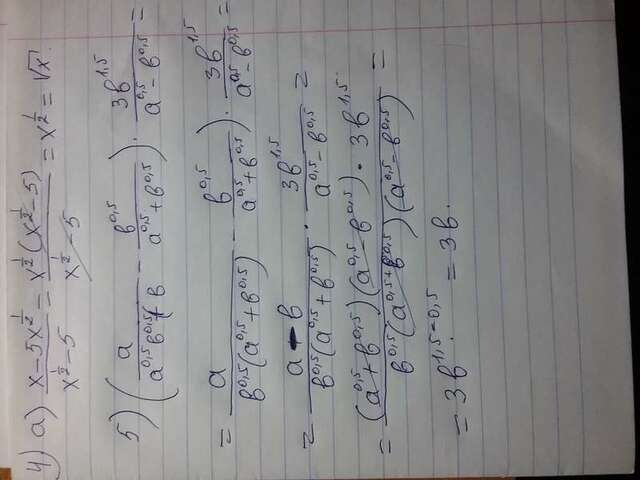 4) а) (x-5x^(1/2))/(x^(1/2)-5) = (x^(1/2)(x^(1/2)-5))/(x^(1/2)-5) = x^(1/2) = √x.
5) (a/(a^0,5 в^0,5 + в) - в^0,5/(a^0,5+в^0,5)) · 3в^1,5/(a^0,5-в^0,5) =
= (a/(в^0,5(a^0,5+в^0,5)) - в^0,5/(a^0,5+в^0,5)) · 3в^1,5/(a^0,5-в^0,5) =
= (a-в)/(в^0,5(a^0,5+в^0,5)) · 3в^1,5/(a^0,5-в^0,5) =
= ((a^0,5+в^0,5)(a^0,5-в^0,5) · 3в^1,5)/(в^0,5(a^0,5+в^0,5)(a^0,5-в^0,5)) =
= 3в^(1,5-0,5) = 3в.